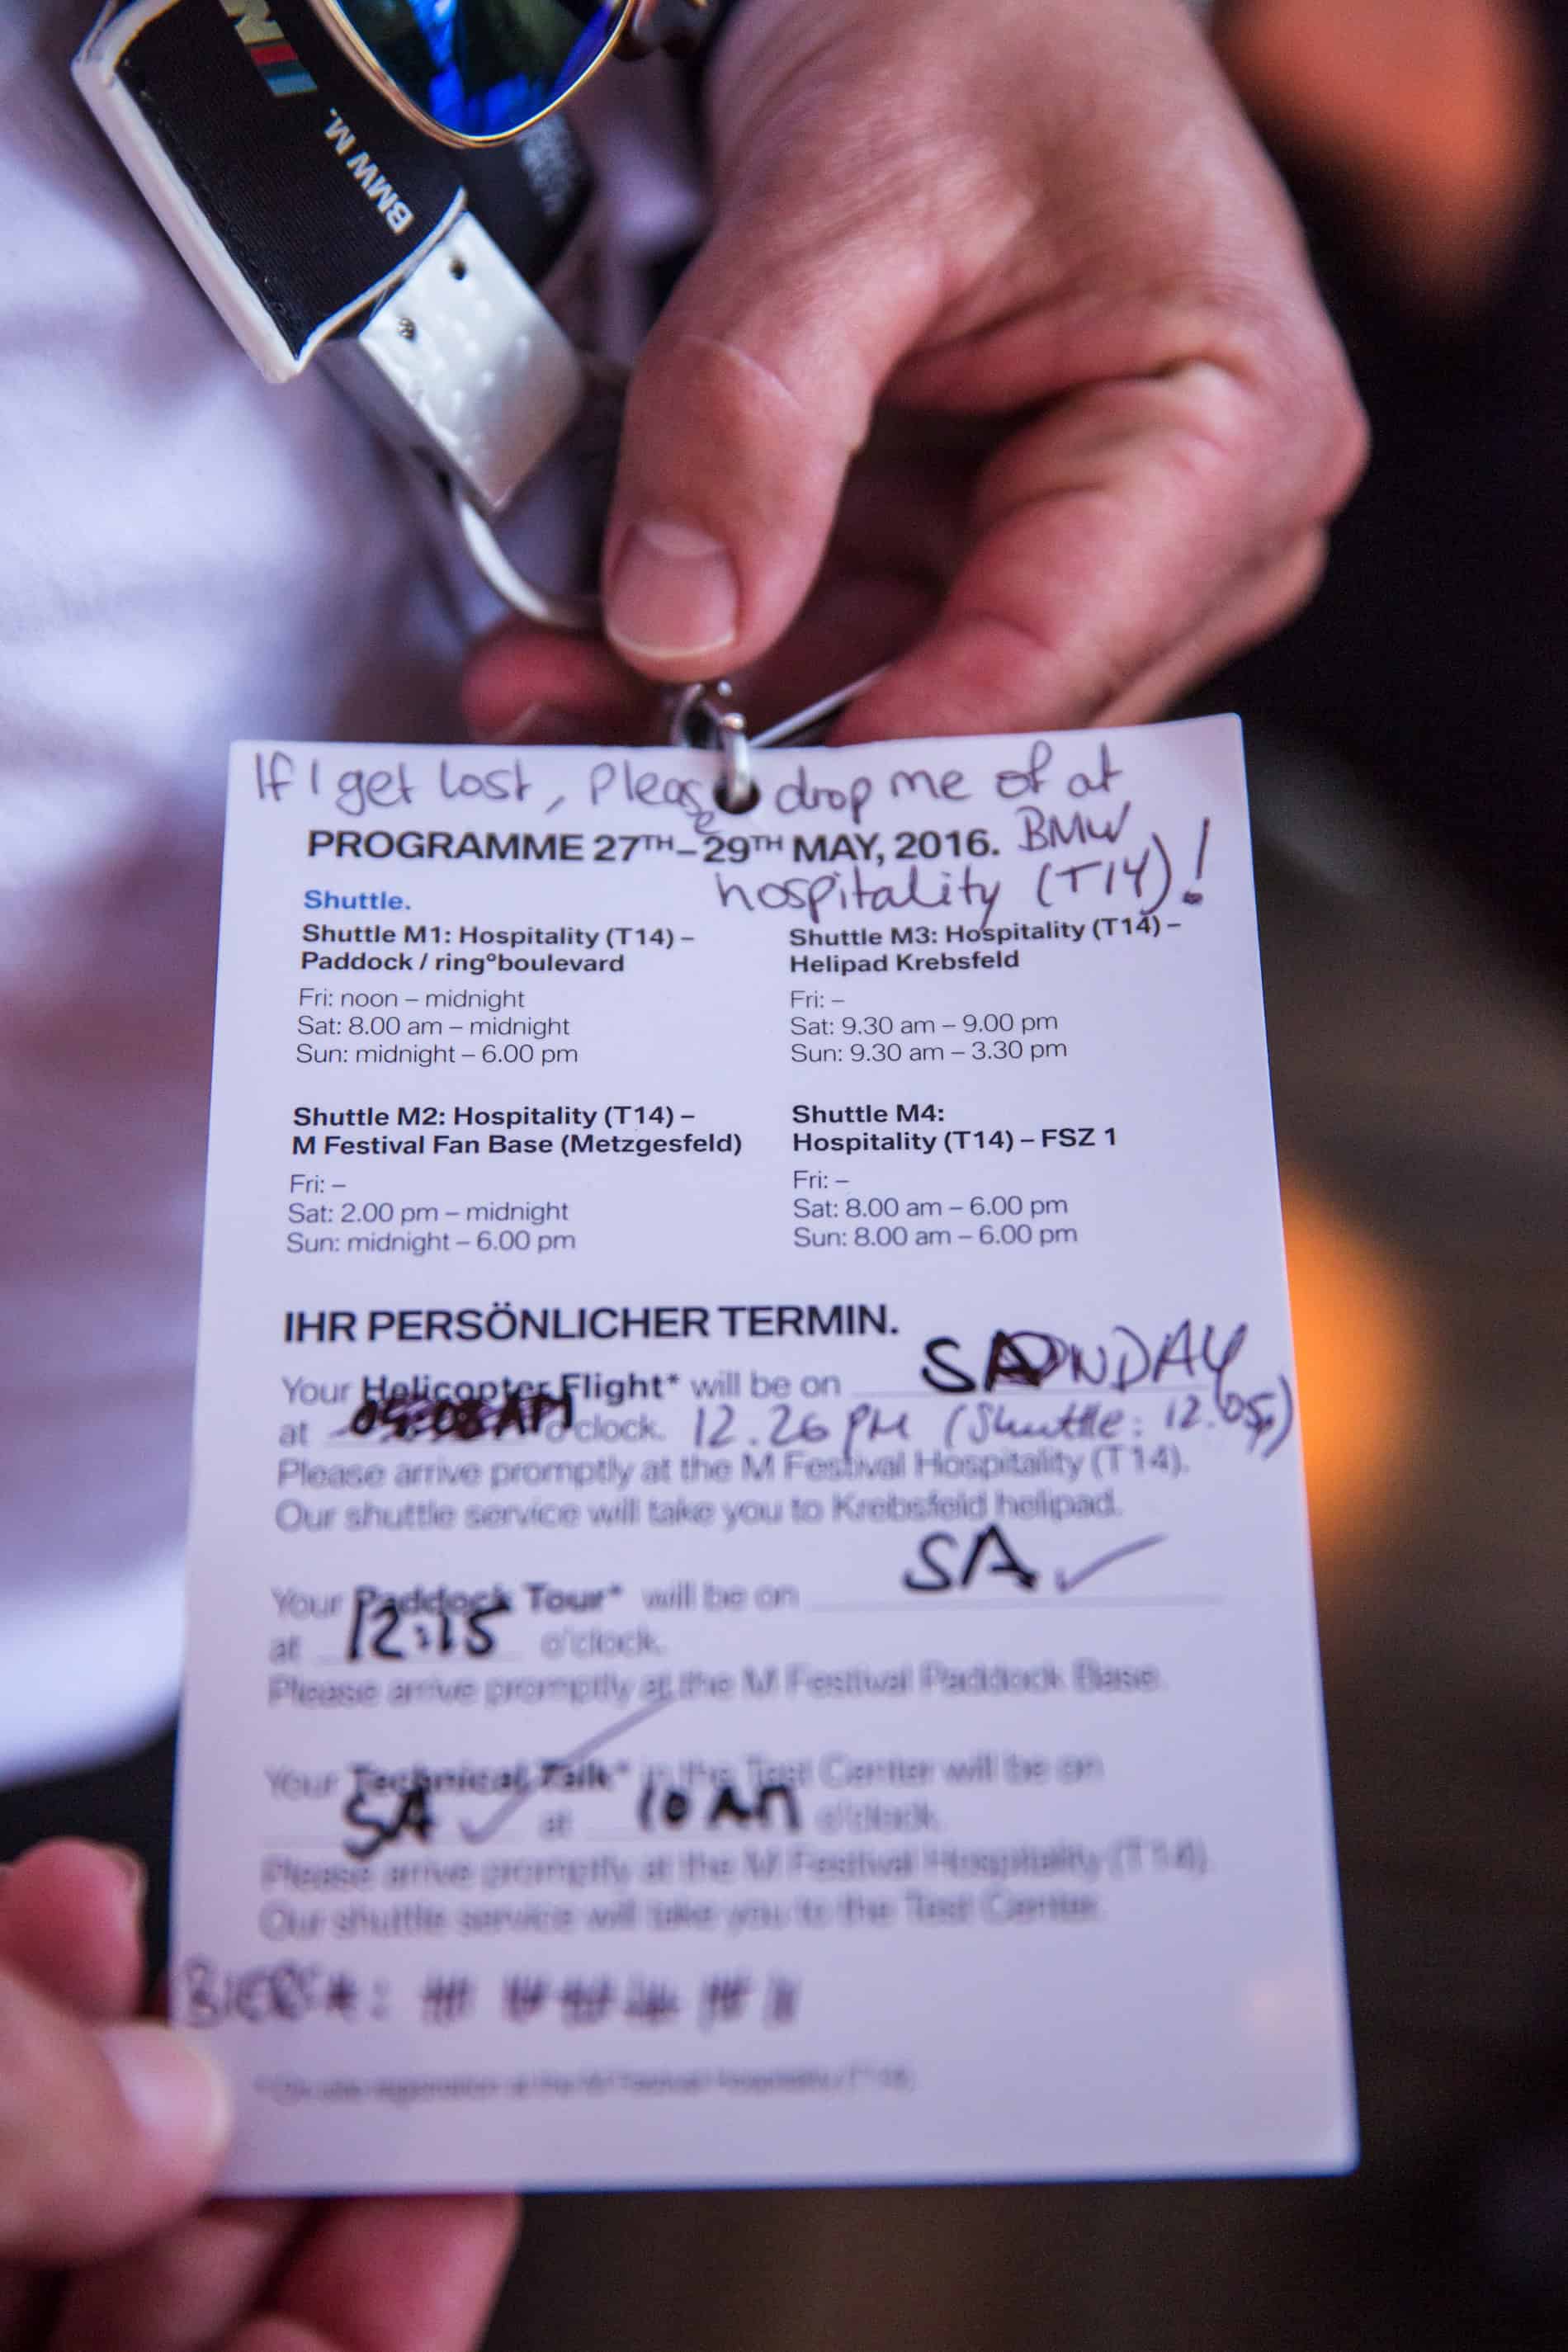 BMW M.
If I get lost, Please drop me of at
BMW
hospitality (T14)!
PROGRAMME 27TH–29TH MAY, 2016.
Shuttle.
Shuttle M1: Hospitality (T14) –
Paddock / ring°boulevard
Fri: noon – midnight
Sat: 8.00 am – midnight
Sun: midnight – 6.00 pm
Shuttle M3: Hospitality (T14) –
Helipad Krebsfeld
Fri: –
Sat: 9.30 am – 9.00 pm
Sun: 9.30 am – 3.30 pm
Shuttle M2: Hospitality (T14) –
M Festival Fan Base (Metzgesfeld)
Fri: –
Sat: 2.00 pm – midnight
Sun: midnight – 6.00 pm
Shuttle M4:
Hospitality (T14) – FSZ 1
Fri: –
Sat: 8.00 am – 6.00 pm
Sun: 8.00 am – 6.00 pm
IHR PERSÖNLICHER TERMIN.
Your Helicopter Flight* will be on
at o'clock. 12.26 PM (Shuttle: 12.05)
Please arrive promptly at the M Festival Hospitality (T14).
Our shuttle service will take you to Krebsfeld helipad.
Your Paddock Tour* will be on SA
at 12:15 o'clock.
Please arrive promptly at the M Festival Paddock Base.
Your Technical Talk* in the Test Center will be on
SA at 10 AM o'clock.
Please arrive promptly at the M Festival Hospitality (T14).
Our shuttle service will take you to the Test Center.